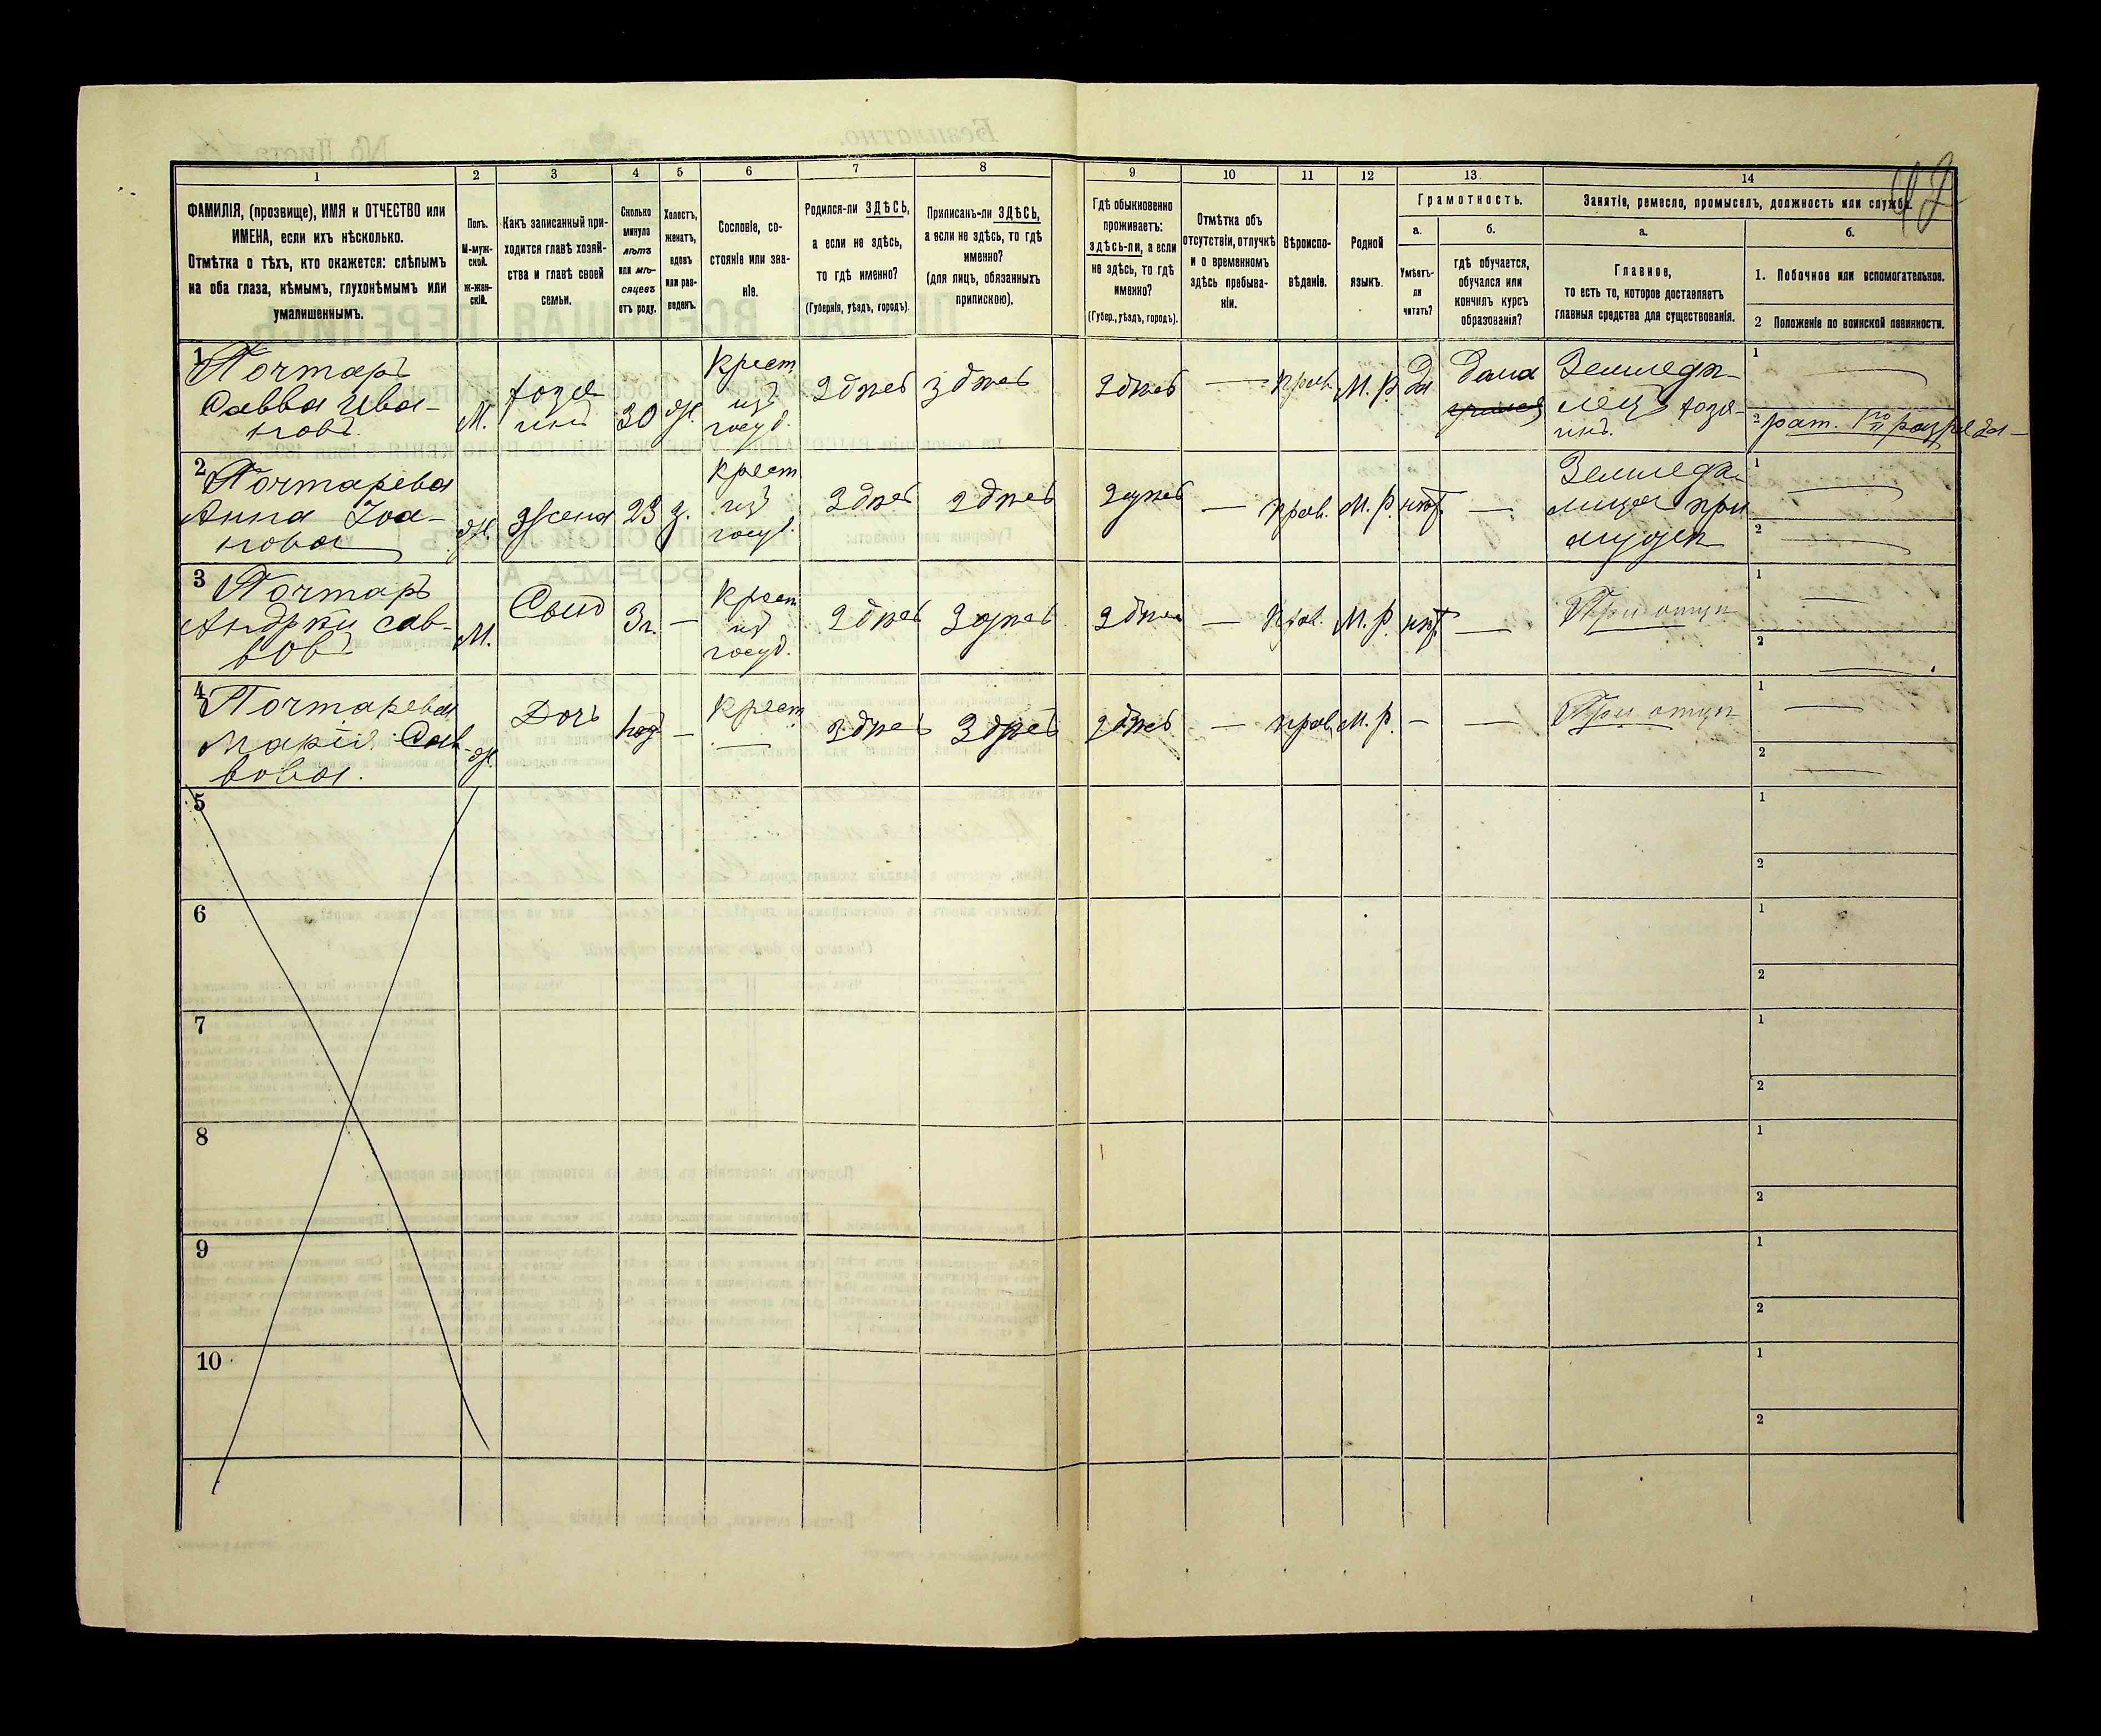 1 2 3 4 5 6 7 8 9 10 11 12 13 14
ФАМИЛІЯ, (прозвище), ИМЯ и ОТЧЕСТВО или
ИМЕНА, если ихъ нѣсколько.
Отмѣтка о тѣхъ, кто окажется: слѣпымъ
на оба глаза, нѣмымъ, глухонѣмымъ или
умалишеннымъ.
Полъ.
М-муж-
ской.
Ж-жен-
скій.
Какъ записанный при-
ходится главѣ хозяй-
ства и главѣ своей
семьи.
Сколько
минуло
лѣтъ
или мѣ-
сяцевъ
отъ роду.
Холостъ,
женатъ,
вдовъ
или раз-
веденъ.
Сословіе, со-
стояніе или зва-
ніе.
Родился-ли ЗДѢСЬ,
а если не здѣсь,
то гдѣ именно?
(Губернія, уѣздъ, городъ).
Приписанъ-ли ЗДѢСЬ,
а если не здѣсь, то гдѣ
именно?
(для лицъ, обязанныхъ
припискою).
Гдѣ обыкновенно
проживаетъ:
здѣсь-ли, а если
не здѣсь, то гдѣ
именно?
(Губер., уѣздъ, городъ).
Отмѣтка объ
отсутствіи, отлучкѣ
и о временномъ
здѣсь пребыва-
ніи.
Вѣроиспо-
вѣданіе.
Родной
языкъ.
Грамотность.
а.
Умѣетъ-
ли
читать?
б.
гдѣ обучается,
обучался или
кончилъ курсъ
образованія?
Занятіе, ремесло, промыселъ, должность или служба.
а.
Главное,
то есть то, которое доставляетъ
главныя средства для существованія.
б.
1. Побочное или вспомогательное.
2 Положеніе по воинской повинности.
1
Почтаръ
Савва Ива-
новъ
М.
хозя-
инъ
30
ж.
Крест
изъ
госуд.
Здѣсь
Здѣсь
Здѣсь
—
прав.
М. Р.
да
дома
Земледѣ-
лецъ хозя-
инъ.
1 —
2 рат.
2
Почтарева
Анна Іоа-
нова
ж.
Жена
23
з.
Крест
изъ
госуд.
Здѣсь
Здѣсь
Здѣсь
—
прав.
М. Р.
нѣт
—
Земледѣ-
лица при
мужѣ
1 —
2 —
3
Почтаръ
Андрѣй Сав-
вовъ
М.
Сынъ
3 г.
—
Крест
изъ
госуд.
Здѣсь
Здѣсь
Здѣсь
—
прав.
М. Р.
нѣт
—
При отцѣ
1 —
2 —
4
Почтарева
Марія Сав-
вова.
ж.
Дочь
1 год
—
Крест
—
Здѣсь
Здѣсь
Здѣсь
—
прав.
М. Р.
—
—
При отцѣ
1 —
2 —
5
1
2
6
1
2
7
1
2
8
1
2
9
1
2
10
1
2